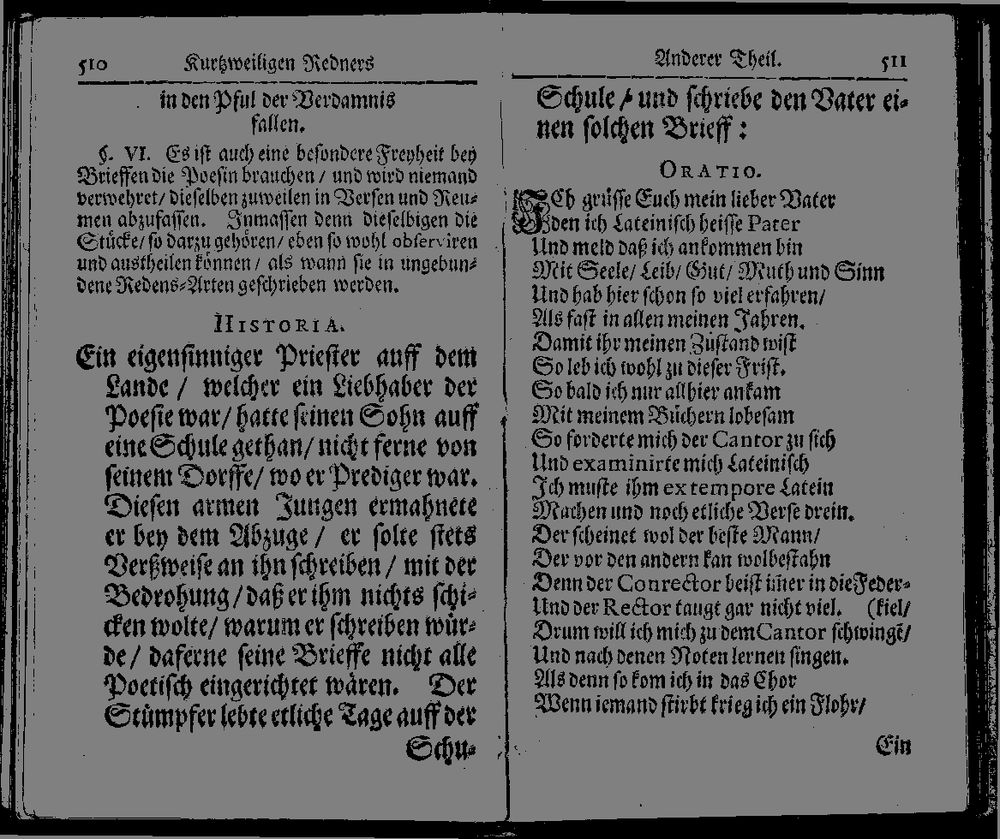 510 Kurtzweiligen Redners
in den Pful der Verdamnis
fallen.
§. VI. Es ist auch eine besondere Freyheit bey
Brieffen die Poesin brauchen / und wird niemand
verwehret / dieselben zuweilen in Versen und Reu-
men abzufassen. Inmassen denn dieselbigen die
Stücke / so darzu gehören / eben so wohl observiren
und austheilen können / als wann sie in ungebun-
dene Redens-Arten geschrieben werden.
HISTORIA.
Ein eigensinniger Priester auff dem
Lande / welcher ein Liebhaber der
Poesie war / hatte seinen Sohn auff
eine Schule gethan / nicht ferne von
seinem Dorffe / wo er Prediger war.
Diesen armen Jungen ermahnete
er bey dem Abzuge / er solte stets
Verßweise an ihn schreiben / mit der
Bedrohung / daß er ihm nichts schi-
cken wolte / warum er schreiben wür-
de / daferne seine Brieffe nicht alle
Poetisch eingerichtet wären. Der
Stümpfer lebte etliche Tage auff der
Schu-
Anderer Theil. 511
Schule / und schriebe den Vater ei-
nen solchen Brieff :
ORATIO.
ICh grüsse Euch mein lieber Vater
den ich Lateinisch heisse Pater
Und meld daß ich ankommen bin
Mit Seele / Leib / Gut / Muth und Sinn
Und hab hier schon so viel erfahren /
Als fast in allen meinen Jahren.
Damit ihr meinen Zustand wist
So leb ich wohl zu dieser Frist.
So bald ich nur allhier ankam
Mit meinem Büchern lobesam
So forderte mich der Cantor zu sich
Und examinirte mich Lateinisch
Ich muste ihm ex tempore Latein
Machen und noch etliche Verse drein.
Der scheinet wol der beste Mann /
Der vor den andern kan wolbestahn
Denn der Conrector beist im̃er in die Feder-
Und der Rector taugt gar nicht viel. (kiel /
Drum will ich mich zu dem Cantor schwingẽ /
Und nach denen Noten lernen singen.
Als denn so kom ich in das Chor
Wenn iemand stirbt krieg ich ein Flohr /
Ein